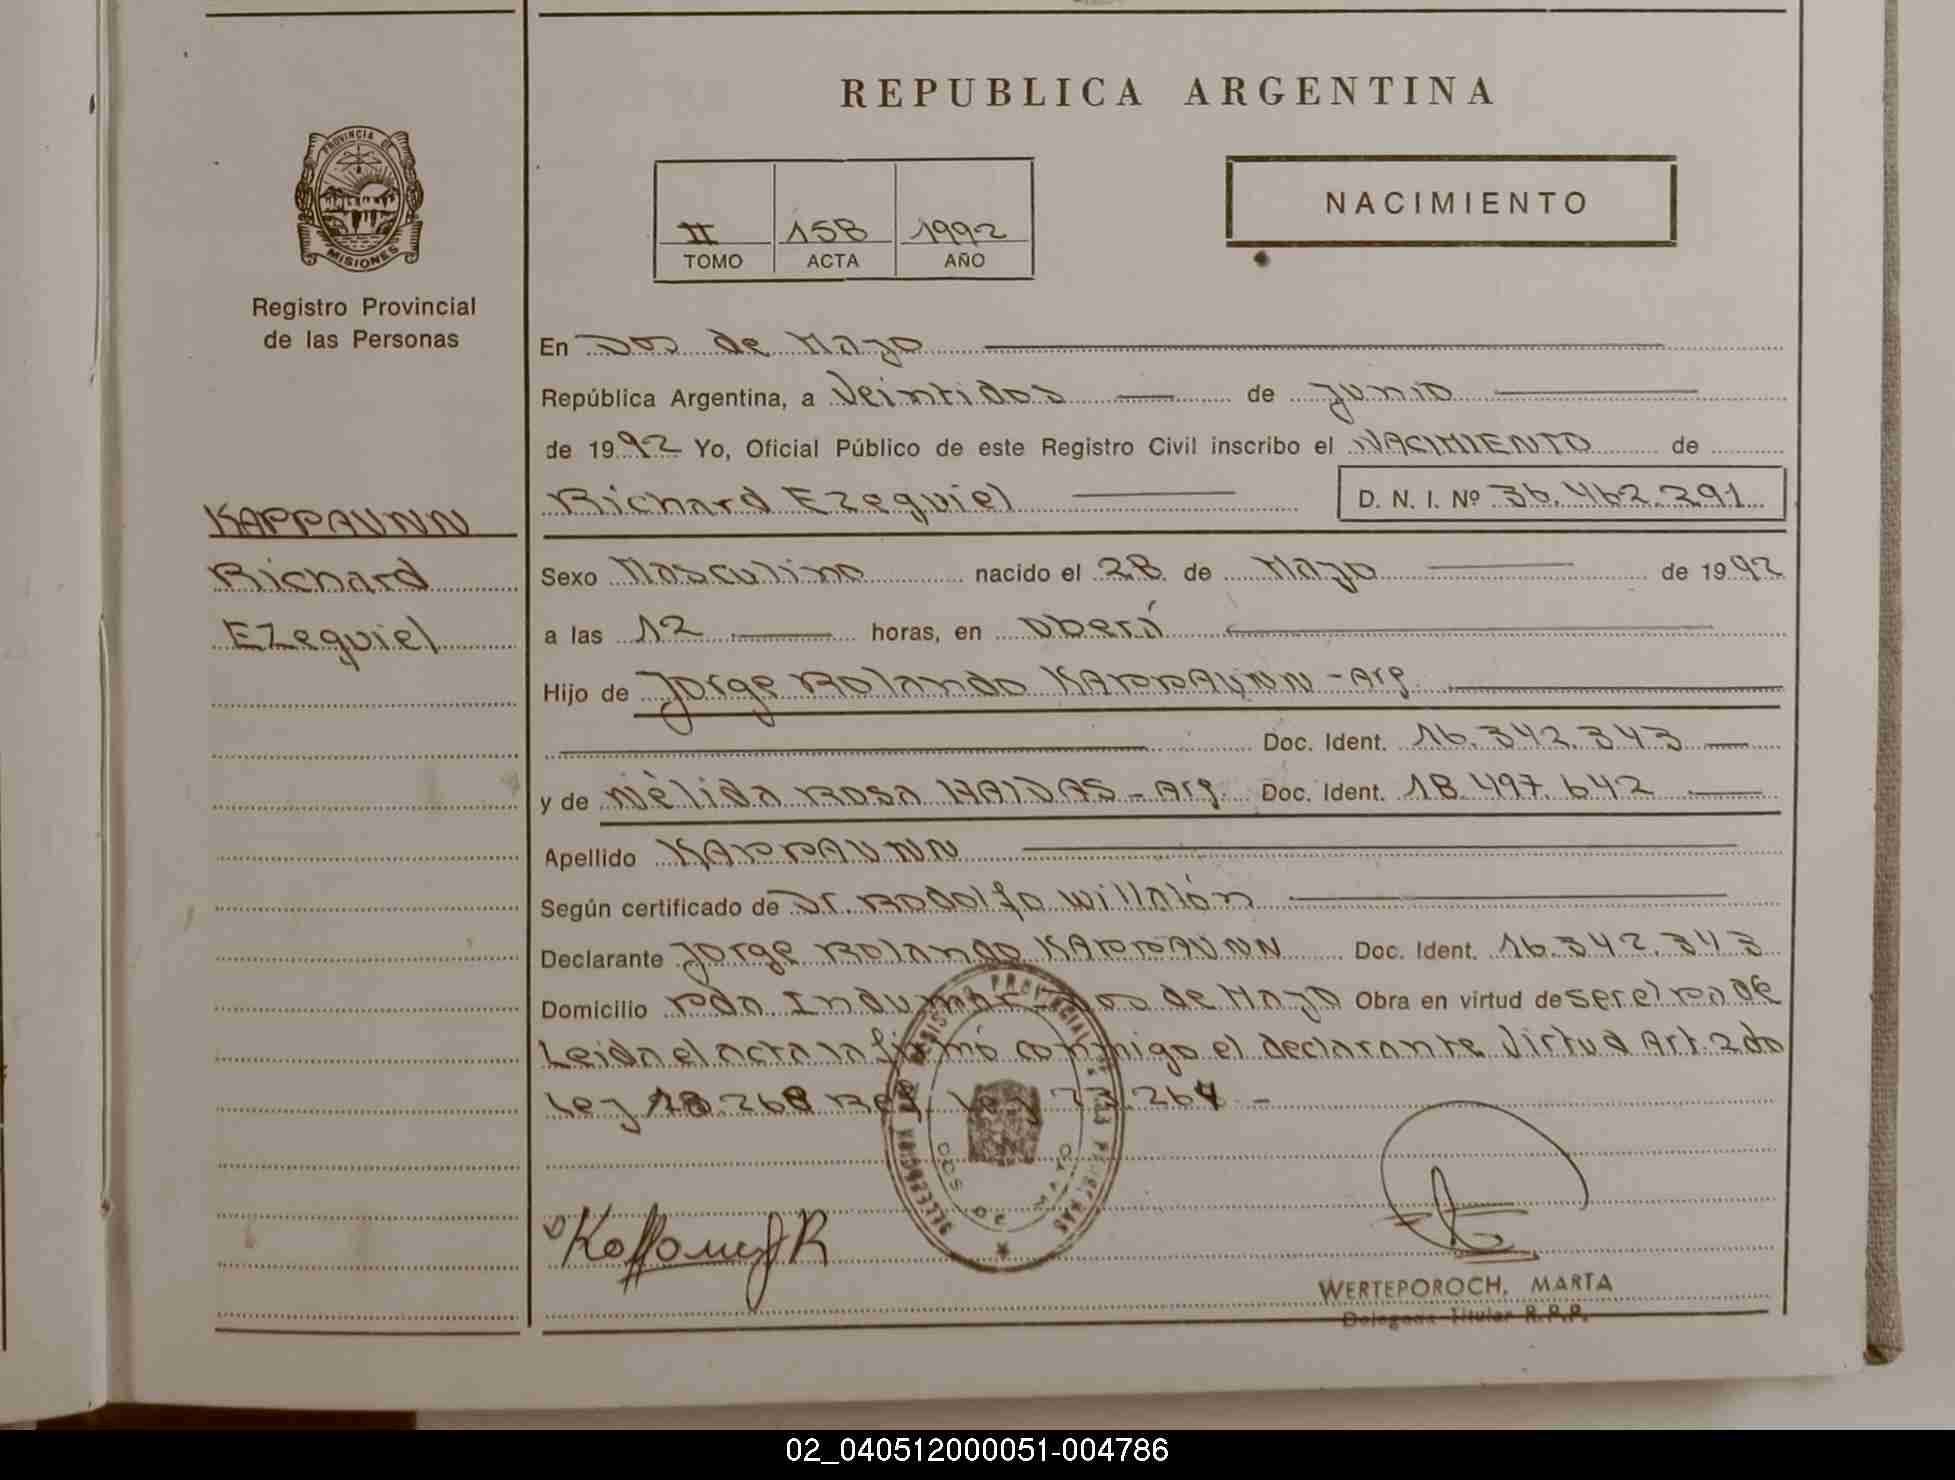 REPUBLICA ARGENTINA
PROVINCIA DE
MISIONES
Registro Provincial
de las Personas
II 158 1992
TOMO ACTA AÑO
NACIMIENTO
En Dos de Mayo
República Argentina, a Veintidos de Junio
de 1992 Yo, Oficial Público de este Registro Civil inscribo el NACIMIENTO de
Richard Ezequiel D. N. I. Nº 36.462.291
KAPPAUNN
Richard
Ezequiel
Sexo Masculino nacido el 28 de Mayo de 1992
a las 12 horas, en Oberá
Hijo de Jorge Rolando KAPPAUNN - Arg.
Doc. Ident. 16.342.343
y de Nèlida Rosa HAIDAS - Arg. Doc. Ident. 18.497.642
Apellido KAPPAUNN
Según certificado de Dr. Rodolfo Willalón
Declarante Jorge Rolando KAPPAUNN Doc. Ident. 16.342.343
Domicilio Pda. Indumar - Dos de Mayo Obra en virtud de ser el padre
Leida el acta la firmó conmigo el declarante Virtud Art. 2do
Ley 18.268 Ley 22.264 -
REGISTRO PROVINCIAL DE LAS PERSONAS
DELEGACION
DOS DE MAYO
WERTEPOROCH, MARTA
Delegada Titular R.P.P.
02_040512000051-004786